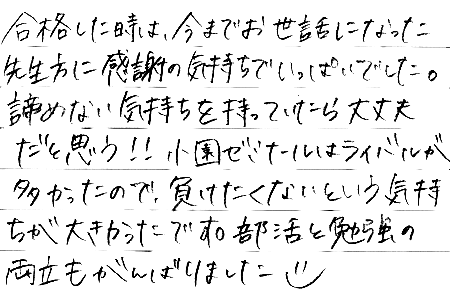 合格した時は、今までお世話になった
先生方に感謝の気持ちでいっぱいでした。
諦めない気持ちを持っていけたら大丈夫
だと思う!! 小園ゼミナールはライバルが
多かったので、負けたくないという気持
ちが大きかったです。部活と勉強の
両立もがんばりました